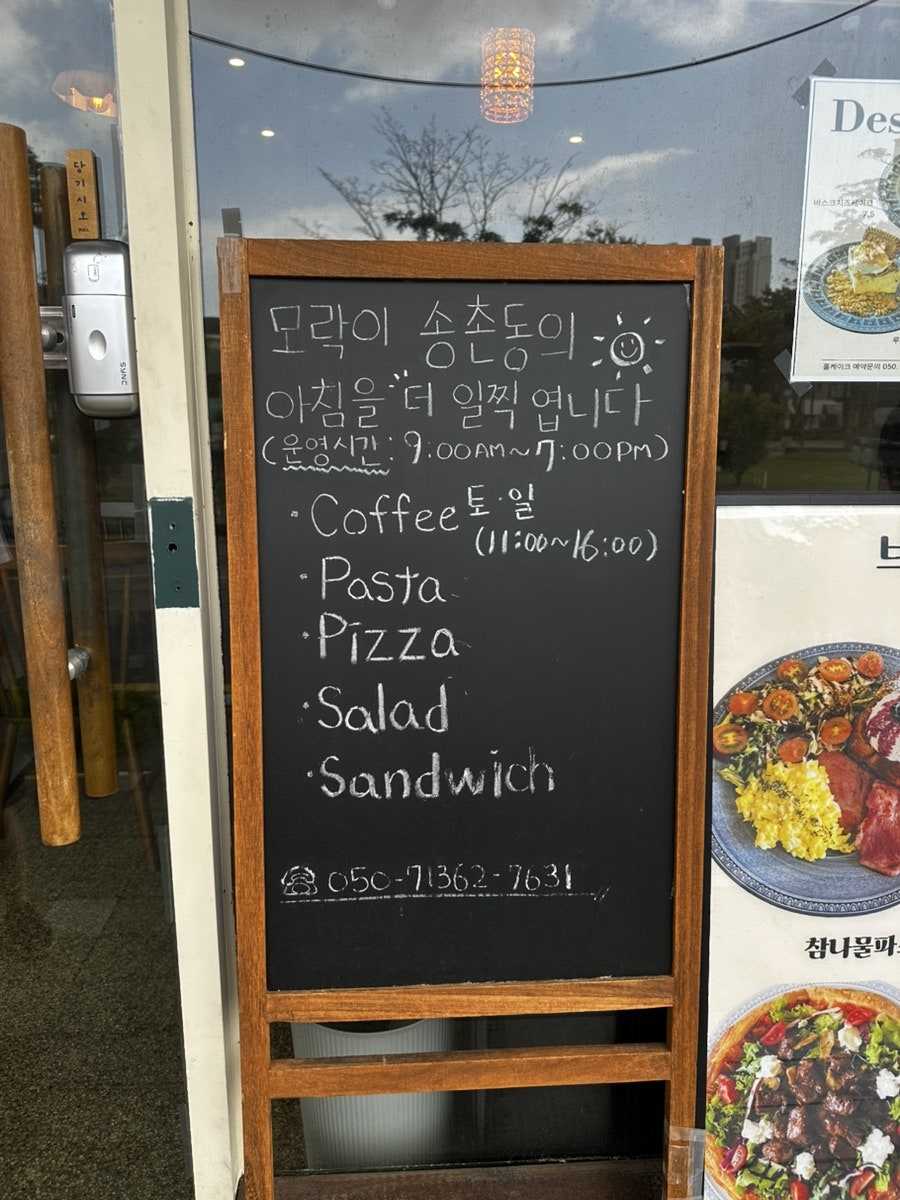 당기시오
PULL
SYNC
모락이 송촌동의
아침을 더 일찍 엽니다
(운영시간: 9:00AM~7:00PM)
· Coffee 토·일
(11:00~16:00)
· Pasta
· Pizza
· Salad
· Sandwich
☎ 050-71362-7631
Des
바스크치즈케이크
7.5
홀케이크 예약문의 050.
참나물파